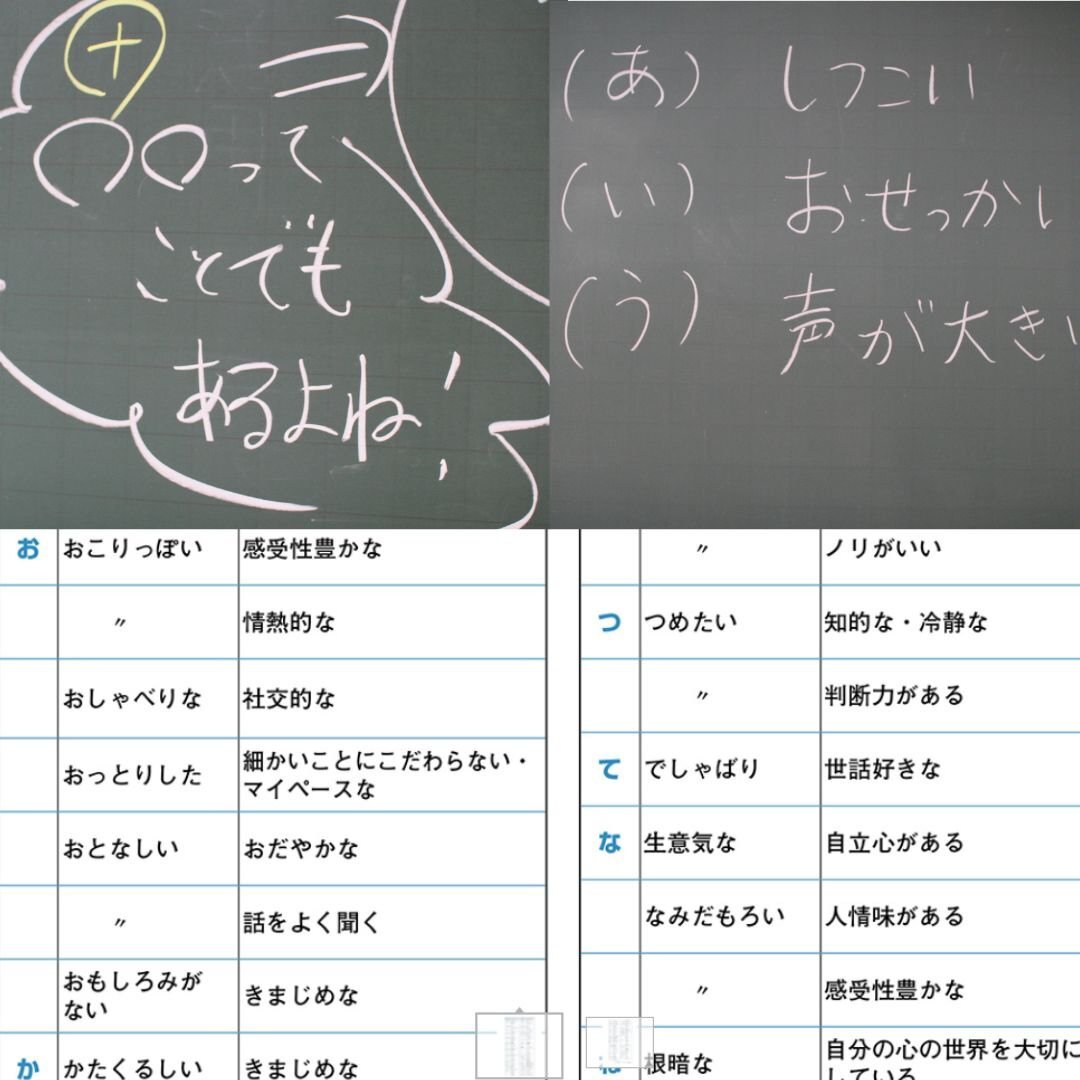 +
〇〇って
ことでも
あるよね!
(あ) しつこい
(い) おせっかい
(う) 声が大きい
お おこりっぽい 感受性豊かな
〃 情熱的な
おしゃべりな 社交的な
おっとりした 細かいことにこだわらない・
マイペースな
おとなしい おだやかな
〃 話をよく聞く
おもしろみが
ない きまじめな
か かたくるしい きまじめな
〃 ノリがいい
つ つめたい 知的な・冷静な
〃 判断力がある
て でしゃばり 世話好きな
な 生意気な 自立心がある
なみだもろい 人情味がある
〃 感受性豊かな
根暗な 自分の心の世界を大切に
している